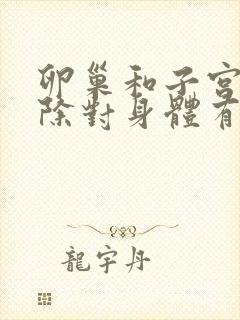 卵巢和子宮
除對身體有
龍宇丹